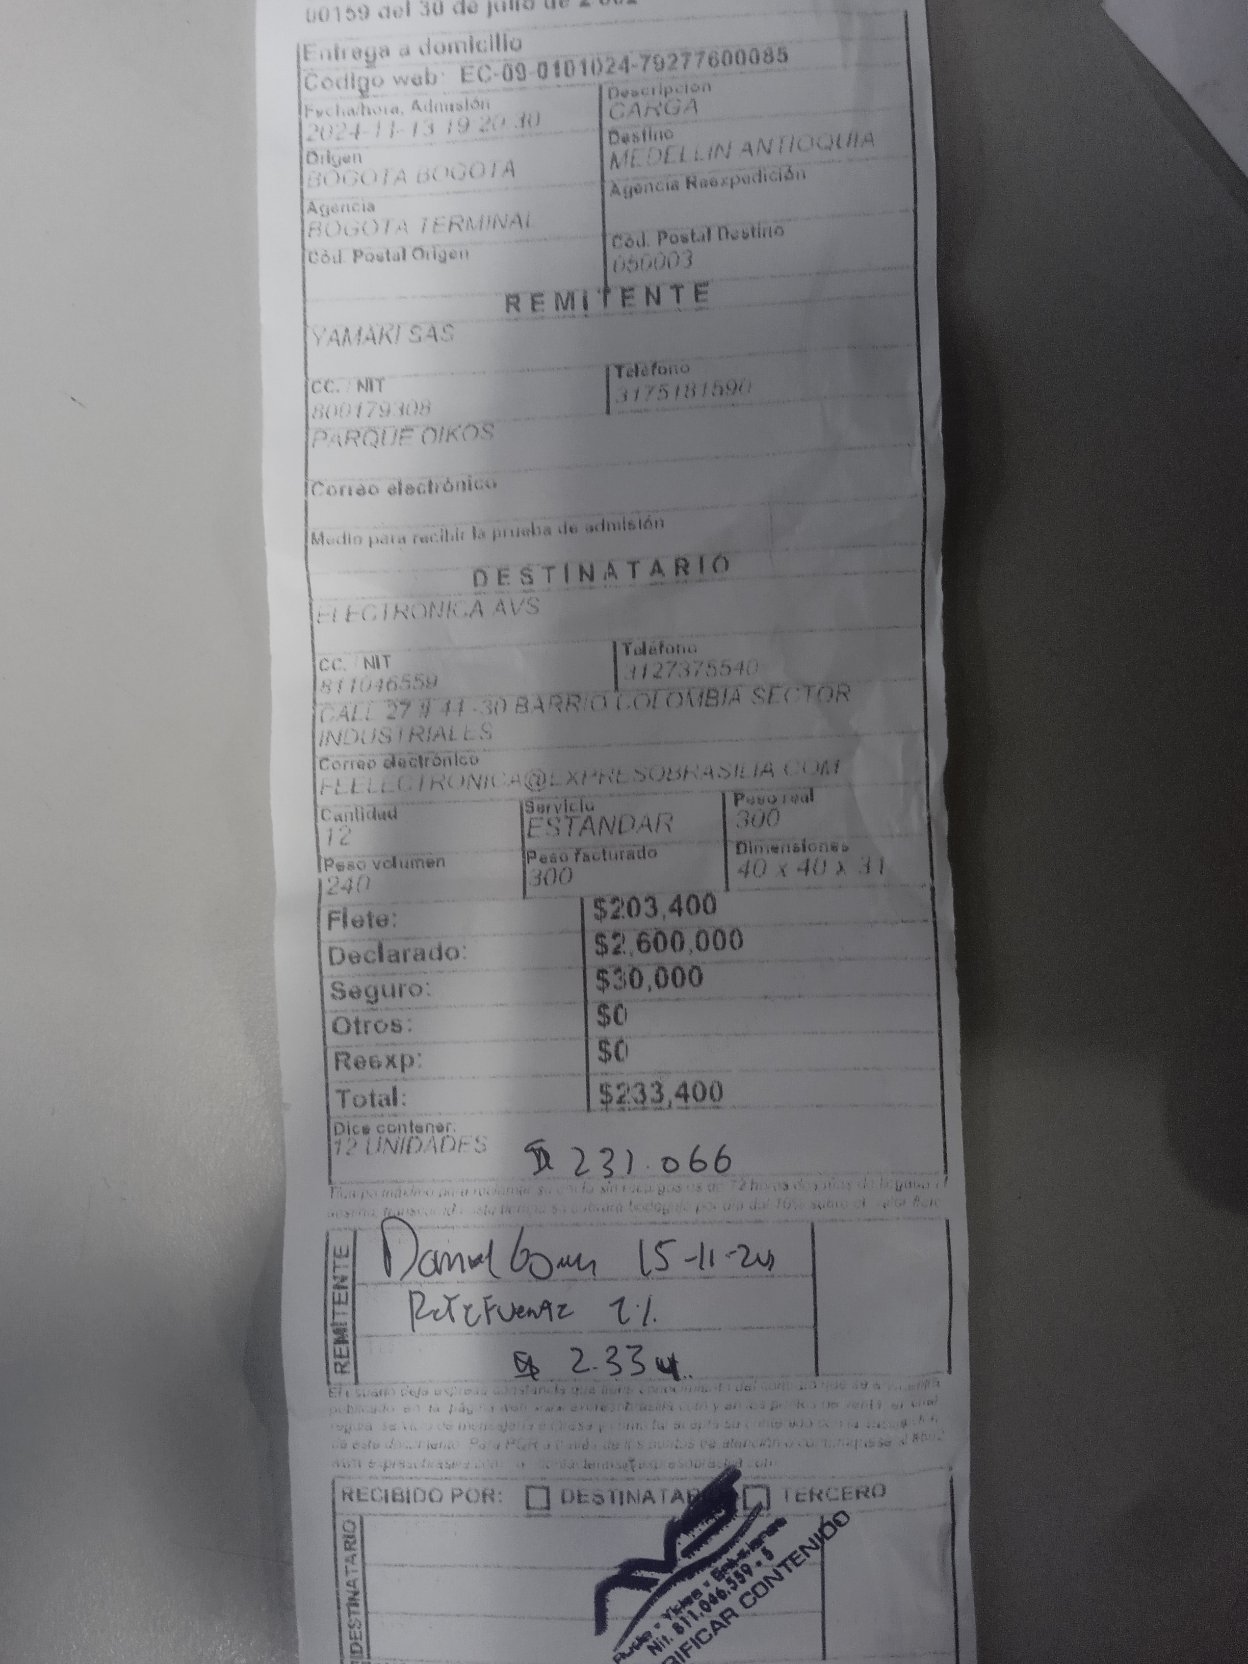 00159 del 30 de julio de 2 002
Entrega a domicilio
Código web: EC-09-0101024-79277600085
Fecha/hora, Admisión
2024-11-13 19 20 30
Descripción
CARGA
Origen
BOGOTA BOGOTA
Destino
MEDELLIN ANTIOQUIA
Agencia
BOGOTA TERMINAL
Agencia Reexpedición
Cód. Postal Origen
Cód. Postal Destino
050003
REMITENTE
YAMAKI SAS
CC. / NIT
800179308
Teléfono
3175181590
PARQUE OIKOS
Correo electrónico
Medio para recibir la prueba de admisión
DESTINATARIO
ELECTRONICA AVS
CC. / NIT
811046559
Teléfono
3127375540
CALL 27 # 41-30 BARRIO COLOMBIA SECTOR
INDUSTRIALES
Correo electrónico
FEELECTRONICA@EXPRESOBRASILIA COM
Cantidad
12
Servicio
ESTANDAR
Peso real
300
Peso volumen
240
Peso facturado
300
Dimensiones
40 x 40 x 31
Flete: $203,400
Declarado: $2,600,000
Seguro: $30,000
Otros: $0
Reexp: $0
Total: $233,400
Dice contener:
12 UNIDADES
$ 231.066
REMITENTE
Daniel 15-11-24
RETEFUENTE 1%
$ 2.334
RECIBIDO POR: DESTINATAR TERCERO
DESTINATARIO
Nit. 811.046.559-5
RIFICAR CONTENIDO